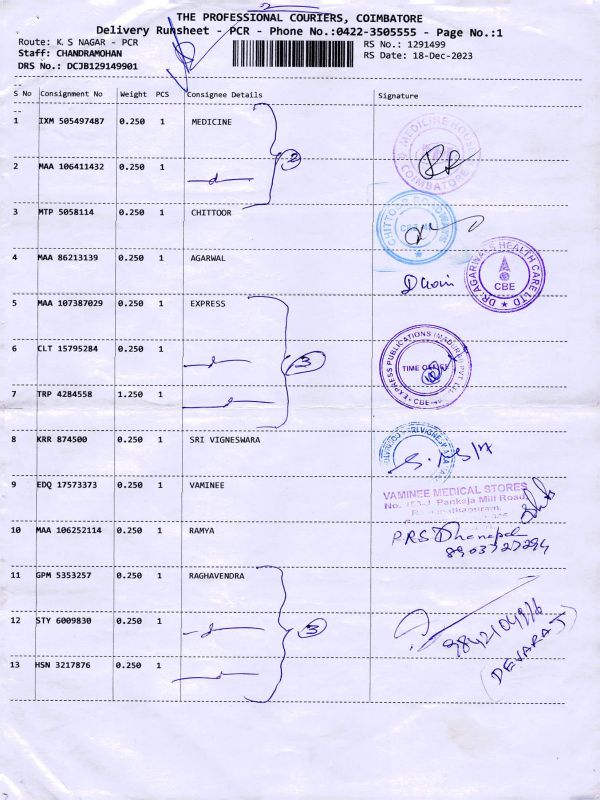 2
THE PROFESSIONAL COURIERS, COIMBATORE
Delivery Runsheet - PCR - Phone No.:0422-3505555 - Page No.:1
Route: K.S NAGAR - PCR
RS No.: 1291499
Staff: CHANDRAMOHAN
RS Date: 18-Dec-2023
DRS No.: DCJB129149901
S No Consignment No Weight PCS Consignee Details Signature
1 IXM 505497487 0.250 1 MEDICINE
MEDICINE HOUSE
COIMBATORE
2 MAA 106411432 0.250 1
2
3 MTP 5058114 0.250 1 CHITTOOR
CHITTOOR
4 MAA 86213139 0.250 1 AGARWAL
DR. AGARWALS HEALTH CARE LTD
CBE
5 MAA 107387029 0.250 1 EXPRESS
EXPRESS PUBLICATIONS (MADURAI) PVT LTD
TIME OFFICE
CBE
6 CLT 15795284 0.250 1
3
7 TRP 4284558 1.250 1
8 KRR 874500 0.250 1 SRI VIGNESWARA
9 EDQ 17573373 0.250 1 VAMINEE
VAMINEE MEDICAL STORES
Pankaja Mill Road,
Ramanathapuram,
10 MAA 106252114 0.250 1 RAMYA
PRS Dhanapal
8903727294
11 GPM 5353257 0.250 1 RAGHAVENDRA
12 STY 6009830 0.250 1
3
(DEVARAJ)
13 HSN 3217876 0.250 1